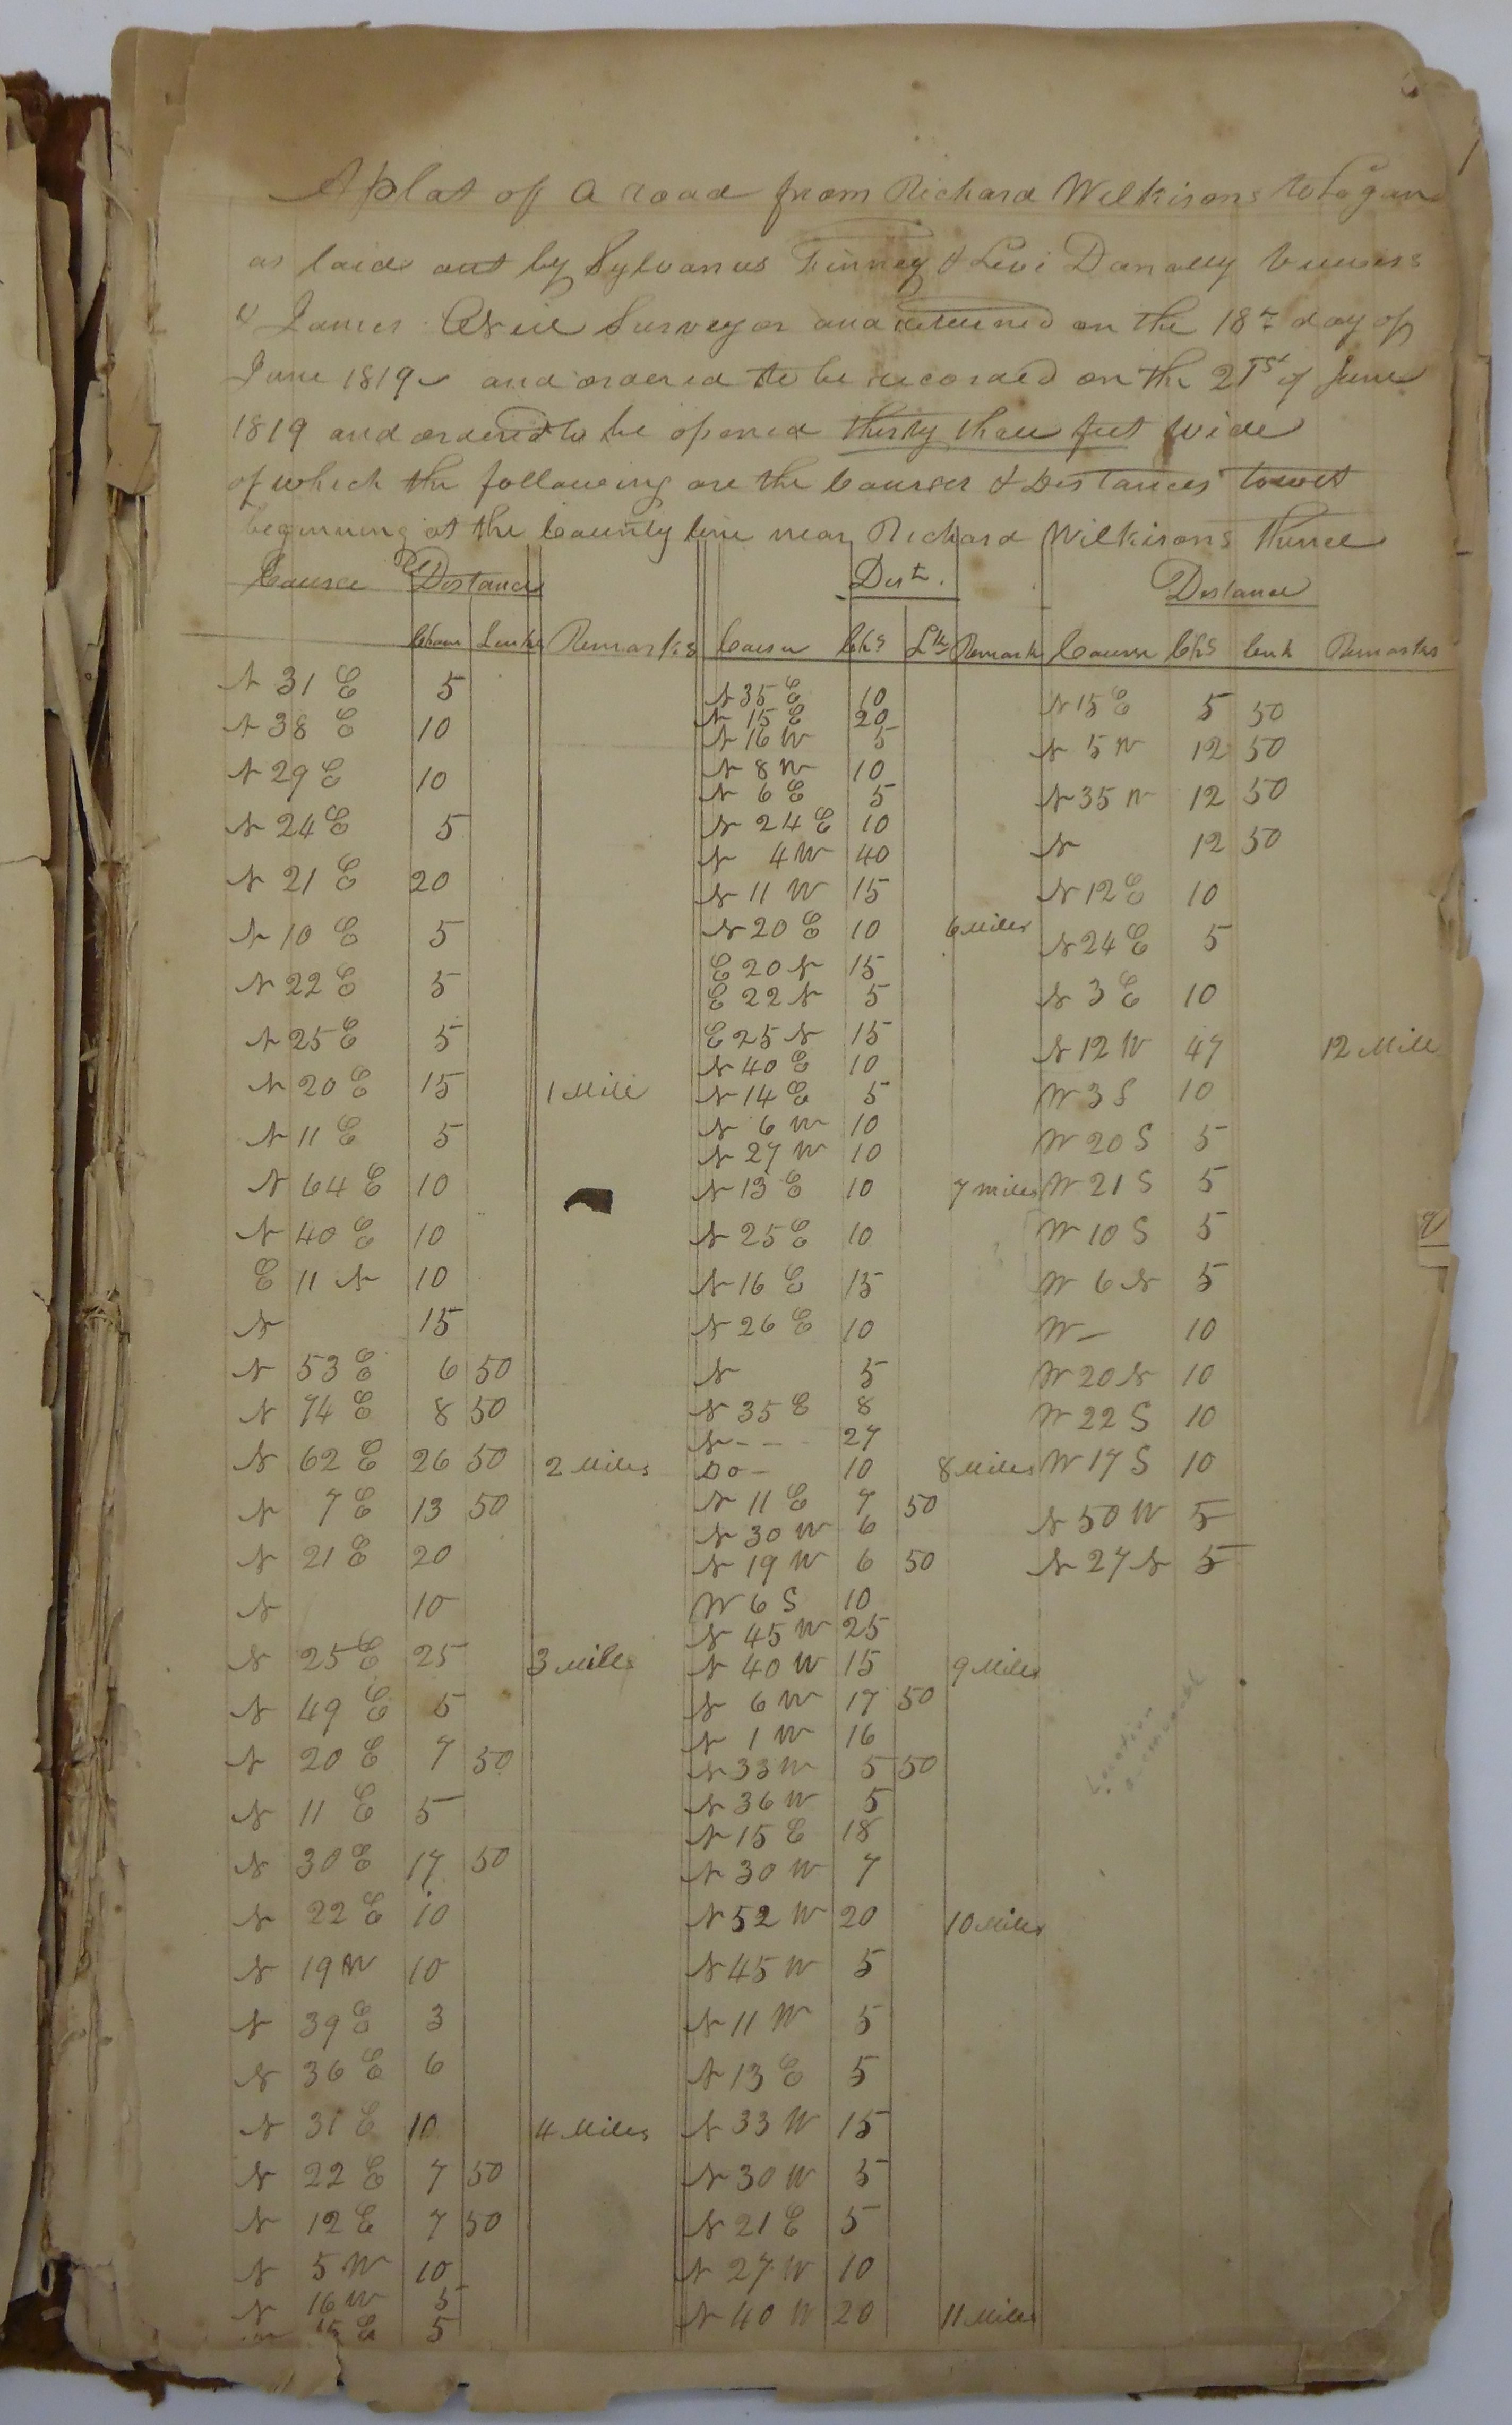 A plat of a road from Richard Wilkisons to Logan
as laid out by Sylvanus Finney & Levi Danally Viewers
& James Surveyor and returned on the 18th day of
June 1819 and ordered to be recorded on the 21st of June
1819 and ordered to be opened thirty three feet wide
of which the following are the Courses & Distances towit
beginning at the County line near Richard Wilkisons thence
Course Distance
Chain Links Remarks
N 31 E 5
N 38 E 10
N 29 E 10
N 24 E 5
N 21 E 20
N 10 E 5
N 22 E 5
N 25 E 5
N 20 E 15 1 Mile
N 11 E 5
N 64 E 10
N 40 E 10
E 11 N 10
N 15
N 53 E 6 50
N 74 E 8 50
N 62 E 26 50 2 Miles
N 7 E 13 50
N 21 E 20
N 10
N 25 E 25 3 Miles
N 49 E 5
N 20 E 7 50
N 11 E 5
N 30 E 17 50
N 22 E 10
N 19 W 10
N 39 E 3
N 36 E 6
N 31 E 10 4 Miles
N 22 E 7 50
N 12 E 7 50
N 5 W 10
N 16 W 5
15 E 5
Dist.
Course Chs Lks Remark
N 35 E 10
N 15 E 20
N 16 W 5
N 8 W 10
N 6 E 5
N 24 E 10
N 4 W 40
N 11 W 15
N 20 E 10 6 Miles
E 20 N 15
E 22 N 5
E 25 N 15
N 40 E 10
N 14 E 5
N 6 W 10
N 27 W 10
N 13 E 10 7 miles
N 25 E 10
N 16 E 15
N 26 E 10
N 5
N 35 E 8
N - - 27
Do - 10 8 Miles
N 11 E 7 50
N 30 W 6
N 19 W 6 50
W 6 S 10
N 45 W 25
N 40 W 15 9 Miles
N 6 W 17 50
N 1 W 16
N 33 W 5 50
N 36 W 5
N 15 E 18
N 30 W 7
N 52 W 20 10 Miles
N 45 W 5
N 11 W 5
N 13 E 5
N 33 W 15
N 30 W 5
N 21 E 5
N 27 W 10
N 40 W 20 11 Miles
Distance
Course Chs Link Remarks
N 15 E 5 50
N 5 W 12 50
N 35 W 12 50
N 12 50
N 12 E 10
N 24 E 5
N 3 E 10
N 12 W 47 12 Mile
W 3 S 10
W 20 S 5
W 21 S 5
W 10 S 5
W 6 N 5
W - 10
W 20 N 10
W 22 S 10
W 17 S 10
N 50 W 5
N 27 N 5
Location